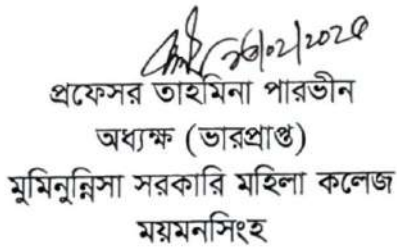 26/02/2025
প্রফেসর তাহমিনা পারভীন
অধ্যক্ষ (ভারপ্রাপ্ত)
মুমিনুন্নিসা সরকারি মহিলা কলেজ
ময়মনসিংহ